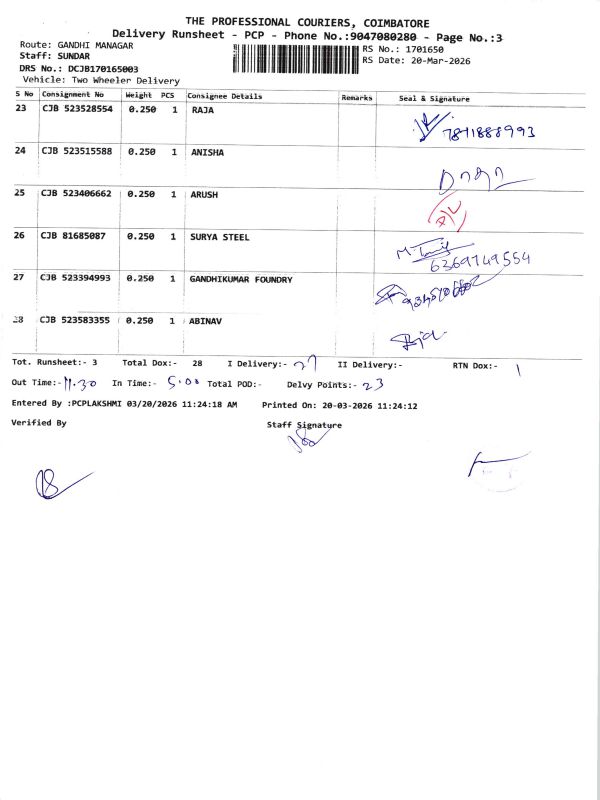 THE PROFESSIONAL COURIERS, COIMBATORE
Delivery Runsheet - PCP - Phone No.:9047080280 - Page No.:3
Route: GANDHI MANAGAR
RS No.: 1701650
Staff: SUNDAR
RS Date: 20-Mar-2026
DRS No.: DCJB170165003
Vehicle: Two Wheeler Delivery
S No Consignment No Weight PCS Consignee Details Remarks Seal & Signature
23 CJB 523528554 0.250 1 RAJA
24 CJB 523515588 0.250 1 ANISHA
25 CJB 523406662 0.250 1 ARUSH
26 CJB 81685087 0.250 1 SURYA STEEL
6369749554
27 CJB 523394993 0.250 1 GANDHIKUMAR FOUNDRY
28 CJB 523583355 0.250 1 ABINAV
Tot. Runsheet:- 3 Total Dox:- 28 I Delivery:- 27 II Delivery:- RTN Dox:- 1
Out Time:- 11.30 In Time:- 5.00 Total POD:- Delvy Points:- 23
Entered By :PCPLAKSHMI 03/20/2026 11:24:18 AM Printed On: 20-03-2026 11:24:12
Verified By Staff Signature